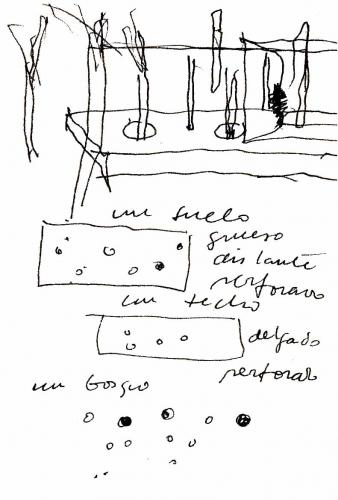 un suelo
grueso
distante
perforado
un techo
delgado
perforado
un bosque